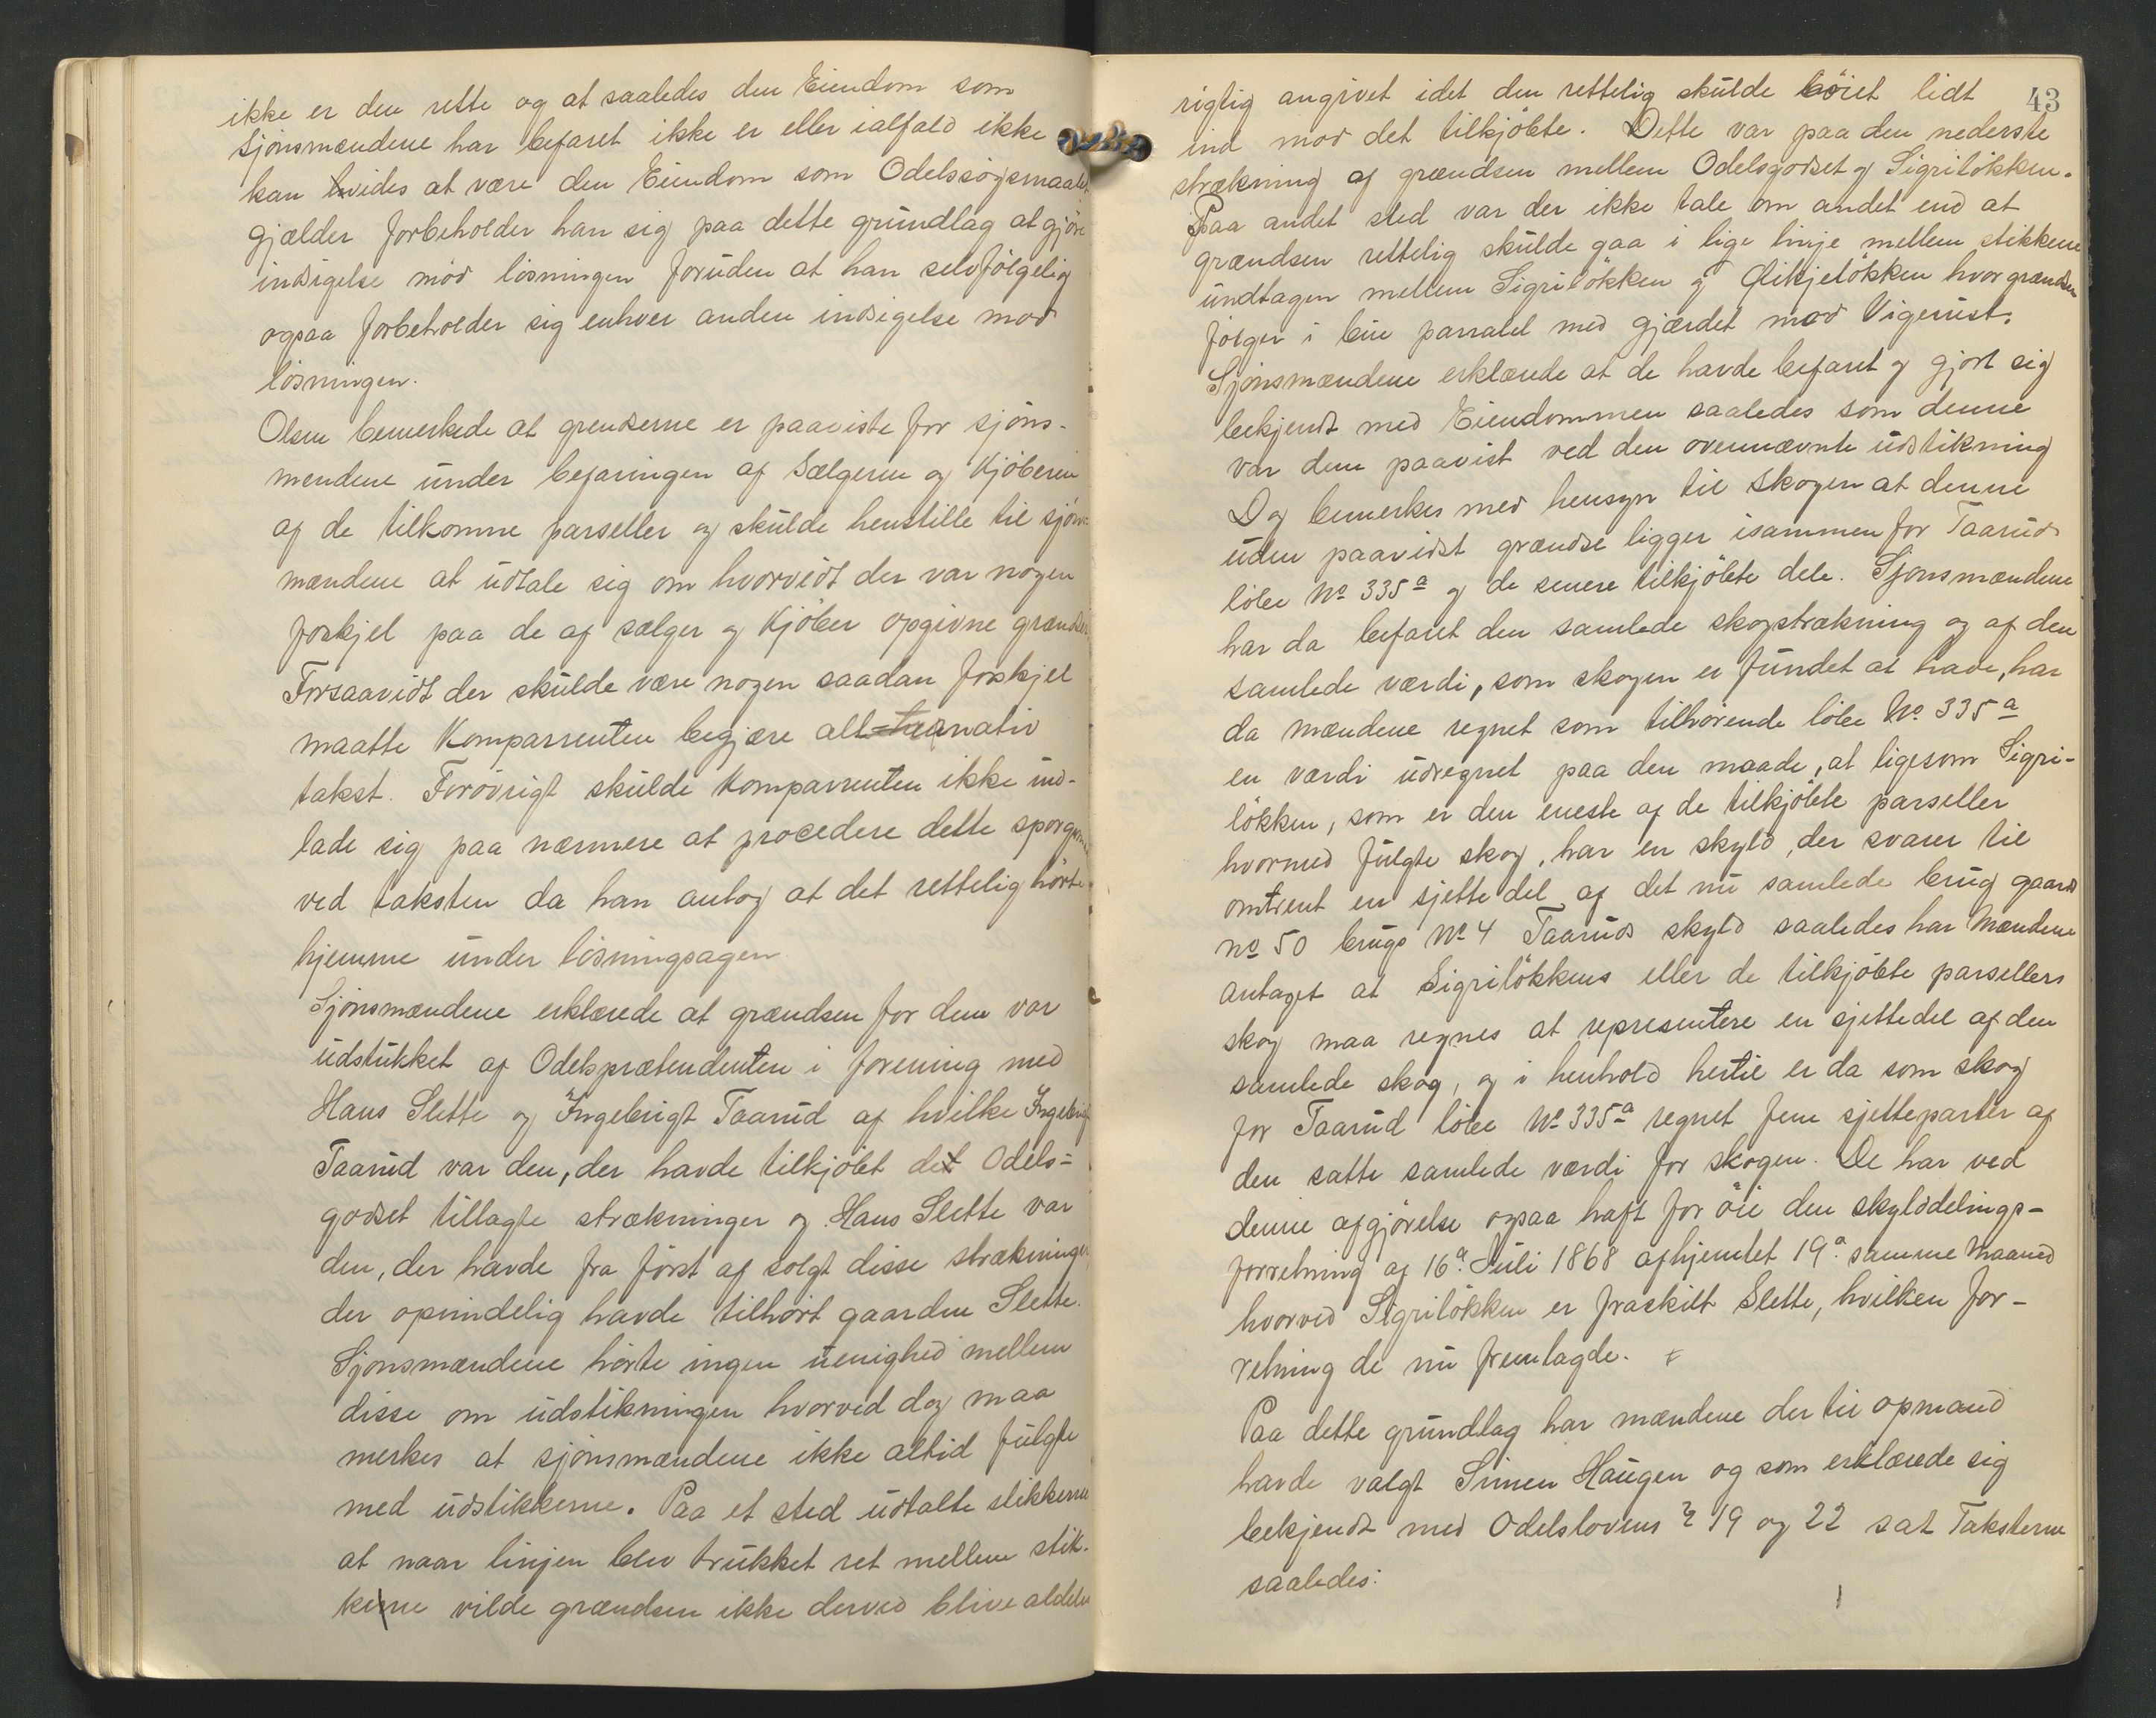 ikke er den rette og at saaledes den Eiendom som
Sjönsmændene har befaret ikke er eller ialfald ikke
kan vides at være den Eiendom som Odelssögsmaalet
gjælder forbeholder han sig paa dette grundlag at gjöre
indsigelse mod lösningen foruden at han selvfölgelig
ogsaa forbeholder sig enhver anden indsigelse mod
lösningen.
Olsen bemerkede at grendserne er paaviste for sjöns-
mendene under befaringen af Sælgeren og Kjöberen
af de tilkomne parseller og skulde henstille til sjöns-
mændene at udtale sig om hvorvidt der var nogen
forskjel paa de af sælger og Kjöber opgivne grændser
Forsaavidt der skulde være nogen saadan forskjel
maatte Komparenten begjære alternativ
takst. Forövrigt skulde Komparenten ikke ind-
lade sig paa nærmere at procedere dette
ved taksten da han antog at det rettelig hörte
hjemme under lösningsagen.
Sjönsmændene erklærede at grændsen for dem var
udstukket af Odelsprætendenten i forening med
Hans Slette og Ingebrigt Taarud af hvilke Ingebrigt
Taarud var den, der havde tilkjöbt det Odels=
godset tillagte strækninger og Hans Slette var
den, der havde fra först af solgt disse strækninger,
der oprindelig havde tilhört gaarden Slette.
Sjönsmændene hörte ingen uenighed mellem
disse om udstikningen hvorved dog maa
merkes at sjönsmændene ikke altid fulgte
med udstikkerne. Paa et sted udtalte stikkerne
at naar linjen blev trukket ret mellem stik-
kerne vilde grændsen ikke derved blive aldeles
43
rigtig angivet idet den rettelig skulde böiet lidt
ind mod det tilkjöbte. Dette var paa den nederste
strækning af grændsen mellem Odelsgodset og Sigrilökken.
Paa andet sted var der ikke tale om andet end at
grændsen rettelig skulde gaa i lige linje mellem stikkene
undtagen mellem Sigrilökken og hvor grændsen
fölger i bue parralel med gjærdet mod Vigerust.
Sjönsmændene erklærede at de havde befaret og gjort sig
bekjendt med Eiendommen saaledes som denne
var dem paavist ved den ovennævnte udstikning
Dog bemerkes med hensyn til Skogen at denne
uden paavidst grændse ligger isammen for Taaruds
löbe No 335a og de senere tilkjöbte dele. Sjönsmændene
har da befaret den samlede skogstrækning og af den
samlede værdi, som skogen er fundet at have, har
da mændene regnet som tilhörende löbe No 335a
en værdi udregnet paa den maade, at ligesom Sigri-
lökken, som er den eneste af de tilkjöbte parseller
hvormed fulgte skog, har en skyld, der svarer til
omtrent en sjettedel af det nu samlede brug gaards
no 50 brugs No 4 Taaruds skyld saaledes har Mændene
antaget at Sigrilökkens eller de tilkjöbte parsellers
skog maa regnes at representere en sjettedel af den
samlede skog, og i henhold hertil er da som skog
for Taarud löbe No 335a regnet fem sjetteparter af
den satte samlede værdi for skogen. De har ved
denne afgjörelse ogsaa haft for öie den skylddelings-
forretning af 16de Juli 1868 afhjemlet 19de samme Maaned
hvorved Sigrilökken er fraskilt Slette, hvilken for-
retning de nu fremlagde.
Paa dette grundlag har mændene der til opmand
havde valgt Simen Haugen og som erklærede sig
bekjendt med Odelslovens § 19 og 22 sat Taksterne
saaledes: